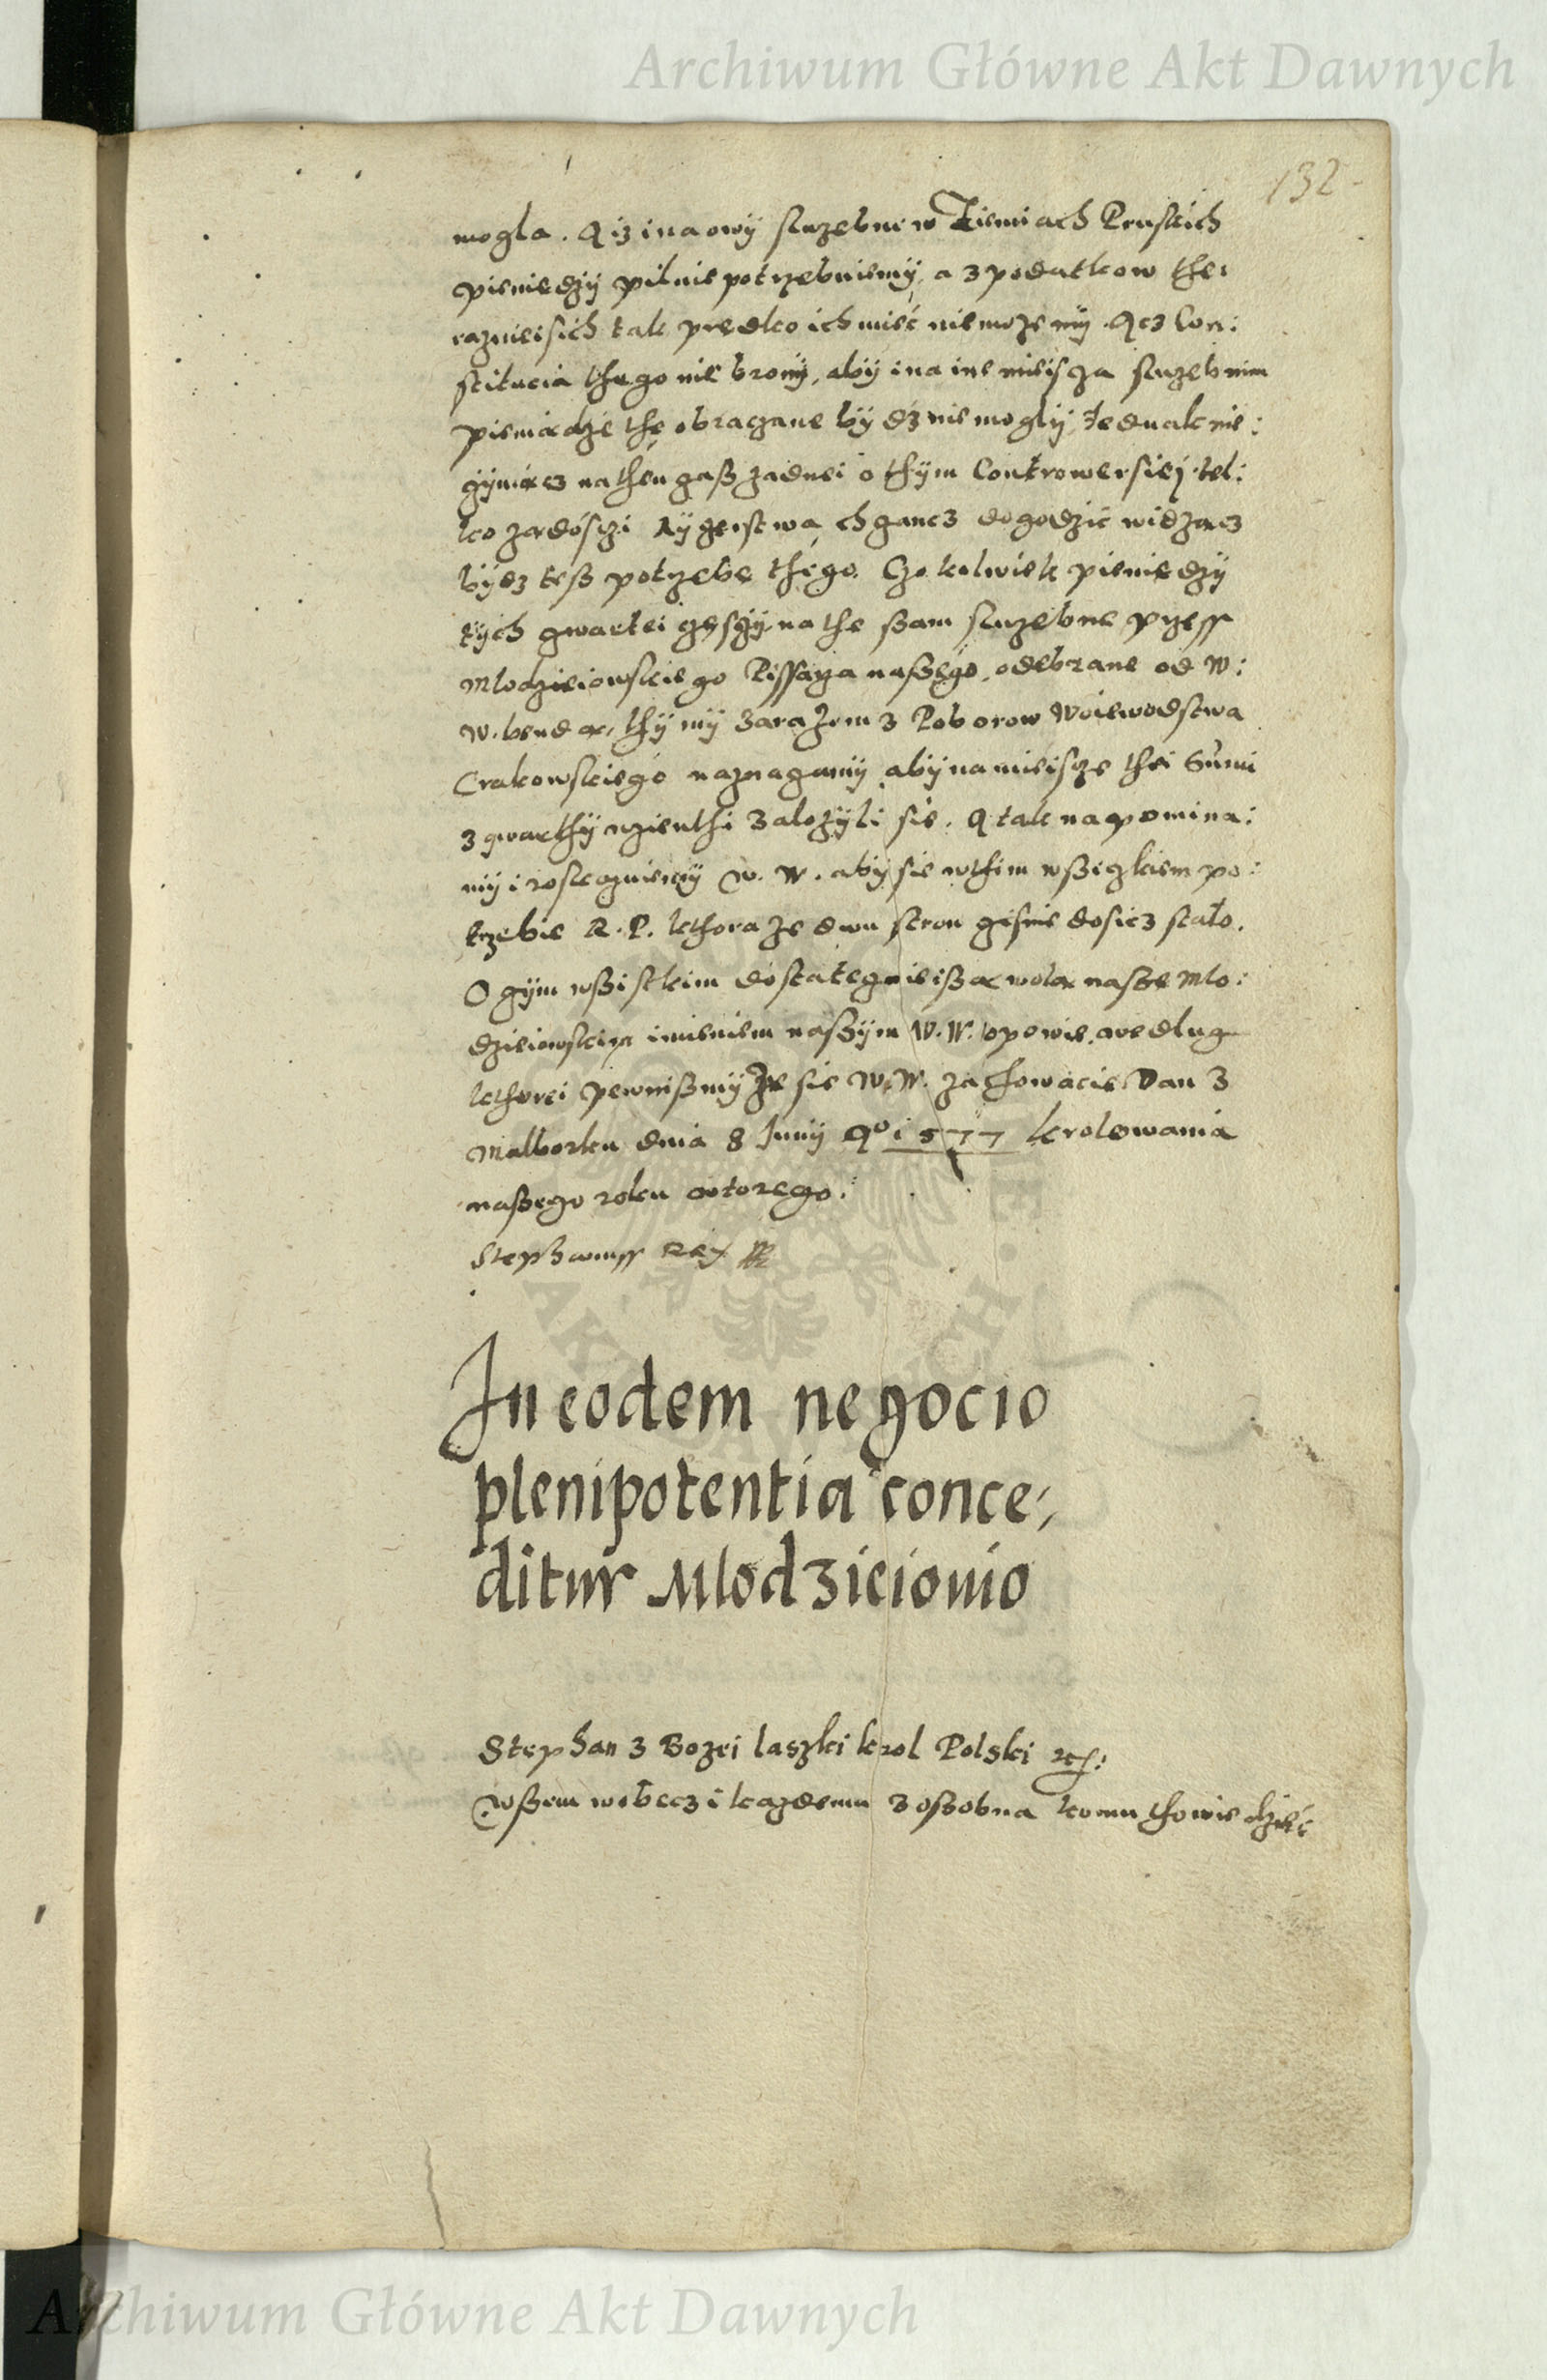 Archiwum Główne Akt Dawnych
132
mogla. A iz i na owy sluzebne w Ziemiach Pruskich
pieniedzy pilnie potrzebuiemy, a z podatkow the:
raznieisich tak predko ich mieć nie mozemy. Acz Con:
stitucia thego nie brony, aby i na ine mieiscza sluzebnim
pieniądze the obraczane bydz nie mogly, Jednak nie:
czyniącz na then czaß zadnei o thym Controwersiei, tel:
ko zadosczi Rycerstwa chcancz dogodzić widzącz
bydz teß potrzebe thego. Czokolwiek pieniedzy
tych qwartei czesczy na the ßam sluzebne przess
Mlodzieiowskiego Pissarza naßego, odebrane od W:
W. bendą, thymy zarazem z Poborow Woiewodstwa
Crakowskiego naznaczamy aby na mieiscze thei Sumi
z qwarthy wzienthi zalozyli sie. A tak napomina:
my i roskazuiemy W. W. aby sie w thim wßiczkiem po:
trzebie R. P. kthora ze dwu stron cisnie dosicz stało.
O czym wßistkim dostatecznieißą wolą naße Mlo:
dzieiowski imieniem naßym W. W. opowie, wedlug
kthorei pewnißmy ze sie W. W. zachowacie. Dan z
Malborku dnia 8 Junij Aº 1577 krolowania
naßego roku wtorego.
Stephanuss Rex
In eodem negocio
plenipotentia conce:
ditur Mlodzieiovio
Stephan z Bozei laszki krol Polski etc:
Wßem wobecz i kazdemu z oßobna komu tho wiedzieć
Archiwum Główne Akt Dawnych